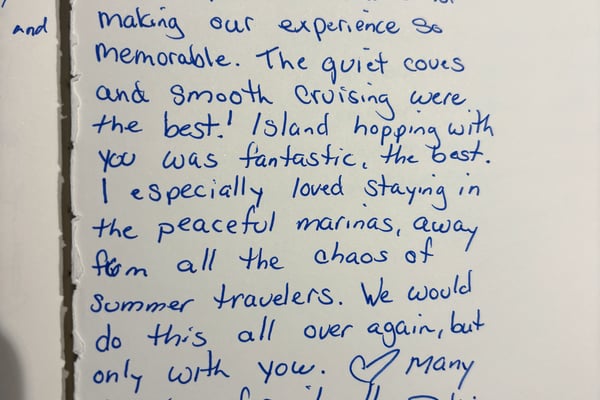 and
making our experience so
memorable. The quiet coves
and smooth cruising were
the best! Island hopping with
you was fantastic, the best.
I especially loved staying in
the peaceful marinas, away
from all the chaos of
summer travelers. We would
do this all over again, but
only with you. ♡ Many